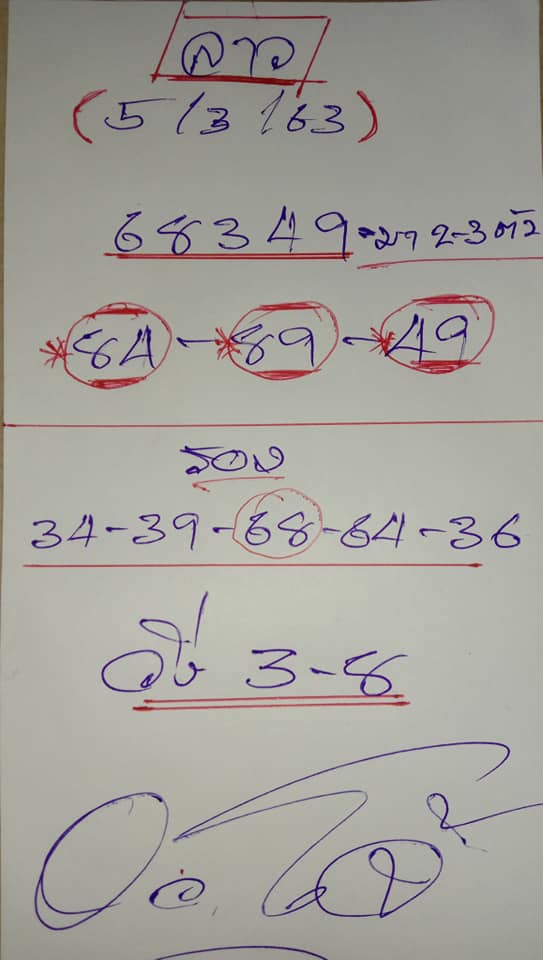 ลาว
(5/3/63)
68349-มา 2-3 ตัว
*84-*89-*49
รอง
34-39-68-64-36
วิ่ง 3-8